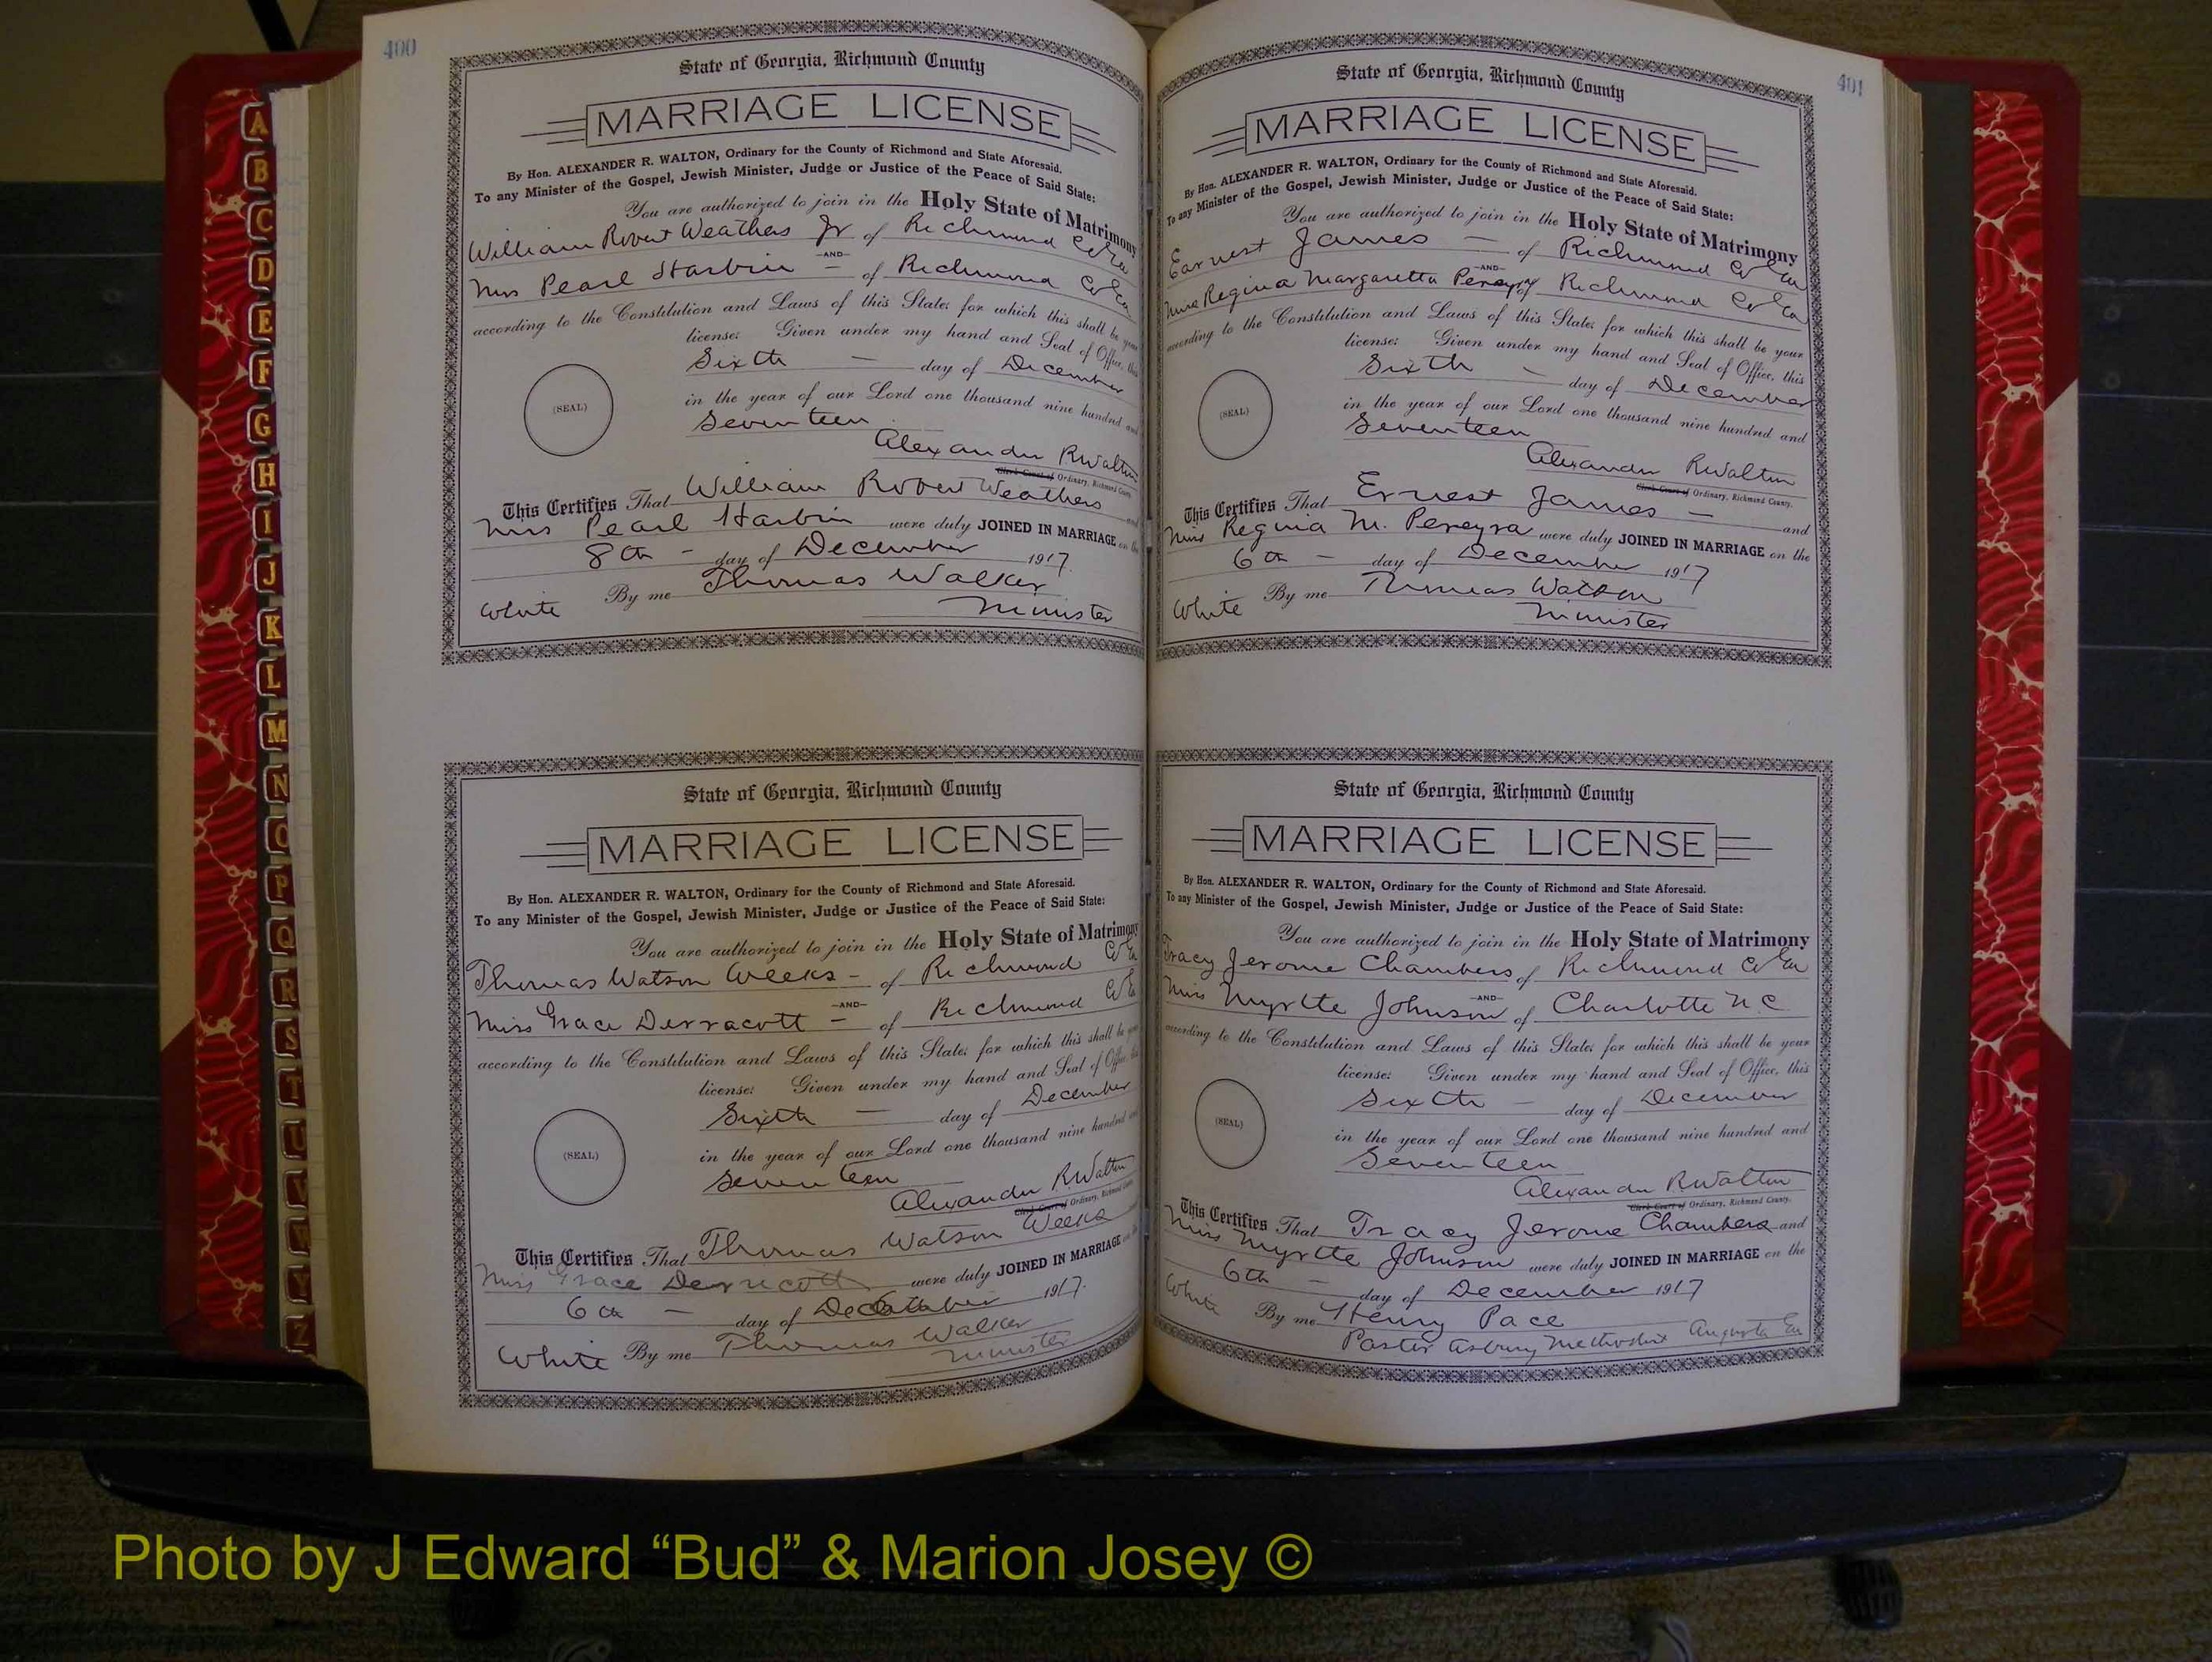 400
State of Georgia, Richmond County
MARRIAGE LICENSE
By Hon. ALEXANDER R. WALTON, Ordinary for the County of Richmond and State Aforesaid.
To any Minister of the Gospel, Jewish Minister, Judge or Justice of the Peace of Said State:
You are authorized to join in the Holy State of Matrimony
William Robert Weathers Jr of Richmond Co Ga
-AND-
Miss Pearl Harbin - of Richmond Co Ga
according to the Constitution and Laws of this State; for which this shall be your
license: Given under my hand and Seal of Office, this
Sixth - day of December
(SEAL)
in the year of our Lord one thousand nine hundred and
Seventeen
Alexander R Walton
Clerk Court of Ordinary, Richmond County
This Certifies That William Robert Weathers and
Miss Pearl Harbin were duly JOINED IN MARRIAGE on the
8th - day of December 1917.
White By me Thomas Walker
Minister
State of Georgia, Richmond County
MARRIAGE LICENSE
By Hon. ALEXANDER R. WALTON, Ordinary for the County of Richmond and State Aforesaid.
To any Minister of the Gospel, Jewish Minister, Judge or Justice of the Peace of Said State:
You are authorized to join in the Holy State of Matrimony
Thomas Watson Weeks - of Richmond Co Ga
-AND-
Miss Grace Derracott - of Richmond Co Ga
according to the Constitution and Laws of this State; for which this shall be your
license: Given under my hand and Seal of Office, this
Sixth - day of December
(SEAL)
in the year of our Lord one thousand nine hundred and
Seventeen
Alexander R Walton
Clerk Court of Ordinary, Richmond County
This Certifies That Thomas Watson Weeks
Miss Grace Derricott were duly JOINED IN MARRIAGE on the
6th - day of December 1917.
White By me Thomas Walker
Minister
401
State of Georgia, Richmond County
MARRIAGE LICENSE
By Hon. ALEXANDER R. WALTON, Ordinary for the County of Richmond and State Aforesaid.
To any Minister of the Gospel, Jewish Minister, Judge or Justice of the Peace of Said State:
You are authorized to join in the Holy State of Matrimony
Earnest James - of Richmond Co Ga
-AND-
Miss Regina Margaretta Pereyra of Richmond Co Ga
according to the Constitution and Laws of this State; for which this shall be your
license: Given under my hand and Seal of Office, this
Sixth - day of December
(SEAL)
in the year of our Lord one thousand nine hundred and
Seventeen
Alexander R Walton
Clerk Court of Ordinary, Richmond County.
This Certifies That Ernest James - and
Miss Regina M. Pereyra were duly JOINED IN MARRIAGE on the
6th - day of December 1917
White By me Thomas Walker
Minister
State of Georgia, Richmond County
MARRIAGE LICENSE
By Hon. ALEXANDER R. WALTON, Ordinary for the County of Richmond and State Aforesaid.
To any Minister of the Gospel, Jewish Minister, Judge or Justice of the Peace of Said State:
You are authorized to join in the Holy State of Matrimony
Tracy Jerome Chambers of Richmond Co Ga
-AND-
Miss Myrtte Johnson of Charlotte N.C.
according to the Constitution and Laws of this State; for which this shall be your
license: Given under my hand and Seal of Office, this
Sixth - day of December
(SEAL)
in the year of our Lord one thousand nine hundred and
Seventeen
Alexander R Walton
Clerk Court of Ordinary, Richmond County.
This Certifies That Tracy Jerome Chambers and
Miss Myrtte Johnson were duly JOINED IN MARRIAGE on the
6th - day of December 1917
White By me Henry Pace
Pastor Asbury Methodist Augusta Ga
A
B
C
D
E
F
G
H
I
J
K
L
M
N
O
P
Q
R
S
T
U
V
W
Y
Z
Photo by J Edward “Bud” & Marion Josey ©